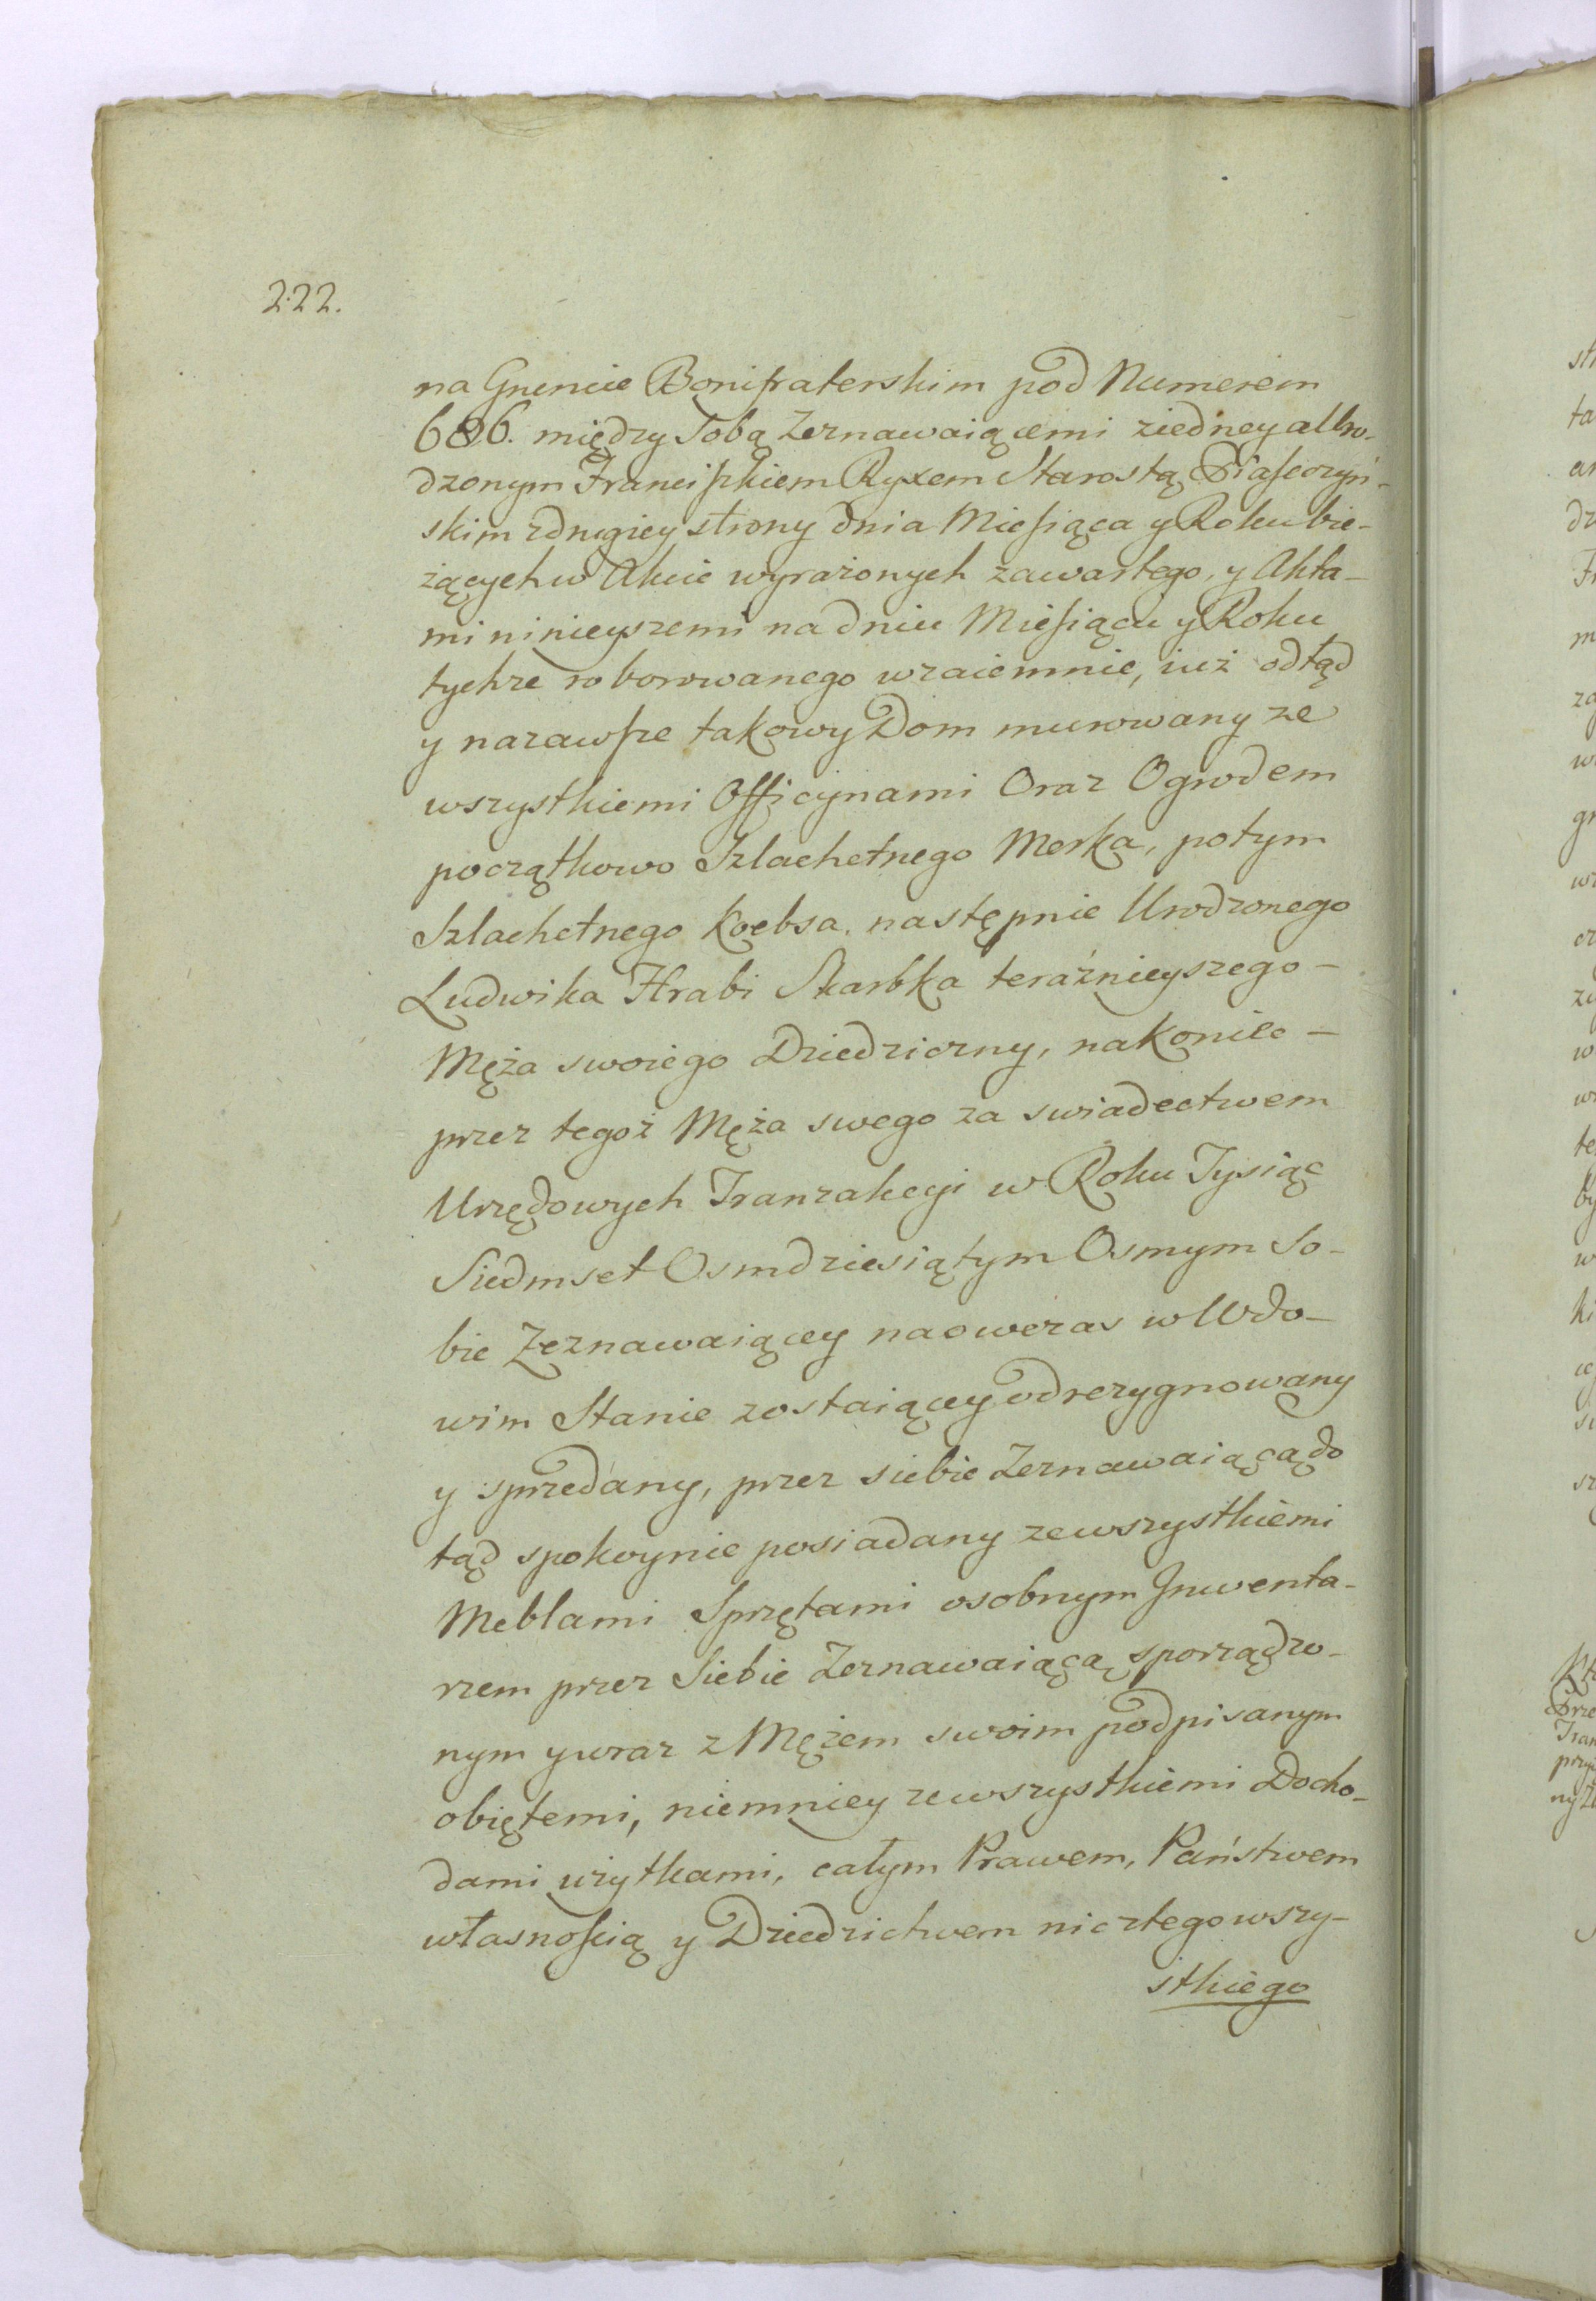 222.
na Gruncie Bonifraterskim pod Numerem
686. między Sobą Zeznawaiącemi ziedney a Uro-
dzonym Franciszkiem Ryxem Starostą Piaseczyń-
skim zdrugiey strony dnia Miesiąca y Roku bie-
żących w Akcie wyrażonych zawartego, y Akta-
mi ninieyszemi na dniu Miesiącu y Roku
tychże roborowanego wzaiemnie, iuż odtąd
y nazawsze takowy Dom murowany ze
wszystkiemi Officynami Oraz Ogrodem
początkowo Szlachetnego Merka, potym
Szlachetnego Koebsa, następnie Urodzonego
Ludwika Hrabi Skarbka teraźnieyszego -
Męża swoiego Dziedziczny, nakoniec -
przez tegoż Męża swego za swiadectwem
Urzędowych Tranzakcyi w Roku Tysiąc
Siedmset Osmdziesiątym Osmym So-
bie Zeznawaiącey naowczas w Wdo-
wim Stanie zostaiącey odrezygnowany
y sprzedany, przez siebie Zeznawaiącą do
tąd spokoynie posiadany zewszystkiemi
Meblami Sprzętami osobnym Inwenta-
rzem przez Siebie Zeznawaiącą sporządzo-
nym y wraz z Mężem swoim podpisanym
obiętemi, niemniey zewszystkiemi Docho-
dami użytkami, całym Prawem, Państwem
własnością y Dziedzictwem nic ztego wszy-
stkiego